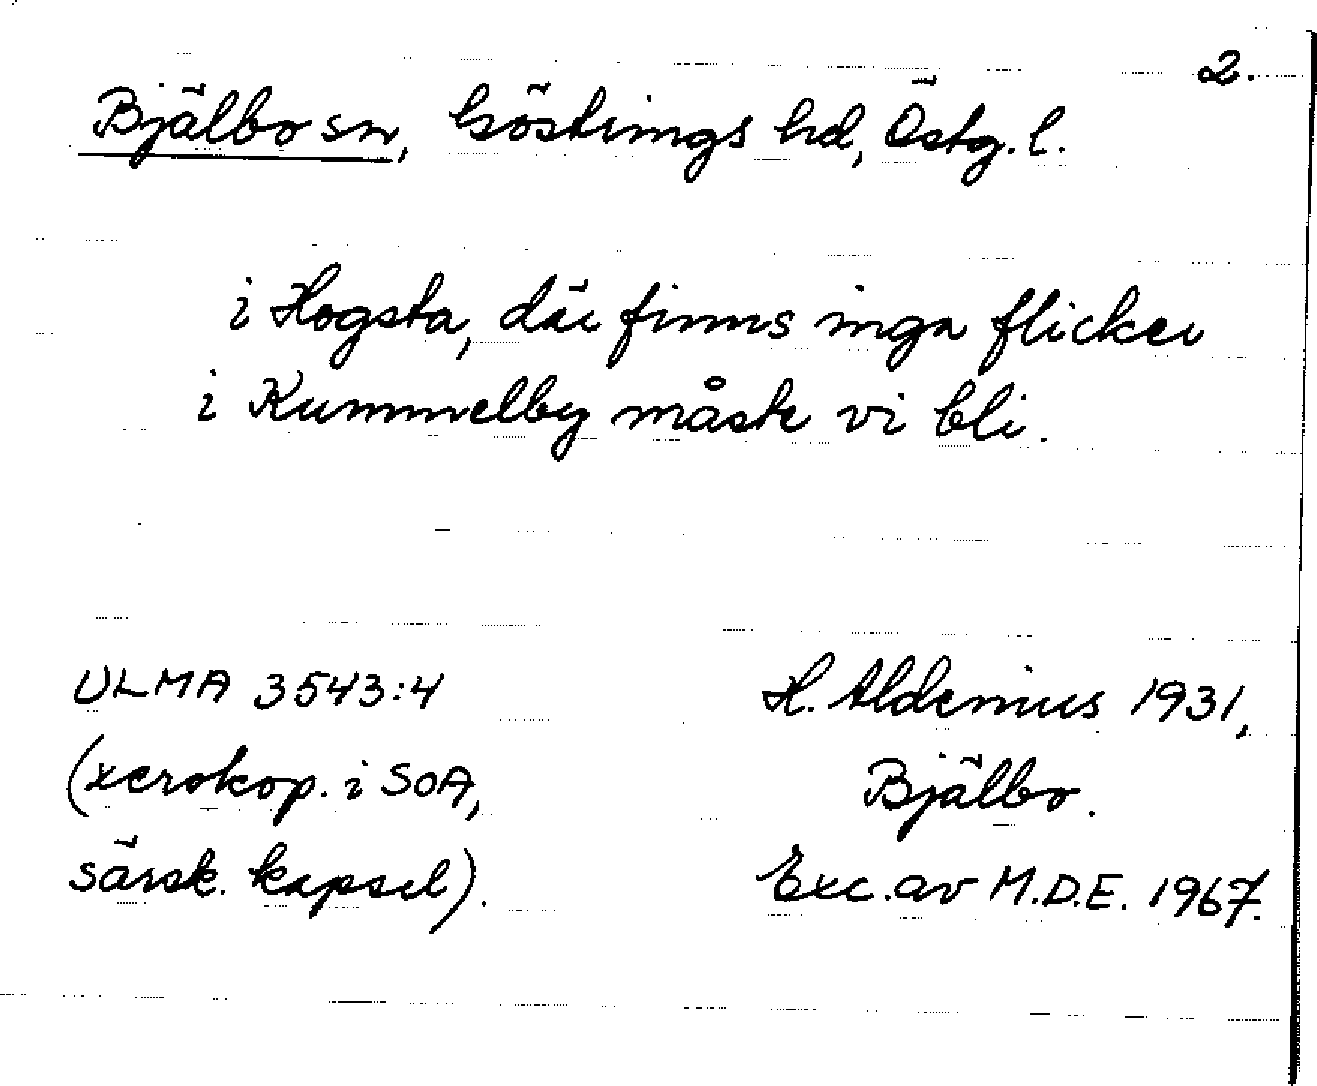 2.
Bjälbo sn, Göstrings hd, Östg. l.
i Hogsta, där finns inga flicker
i Kummelby måste vi bli.
ULMA 3543:4
(xerokop. i SOA,
särsk. kapsel).
H. Aldenius 1931,
Bjälbo.
Exc. av M.D.E. 1967.